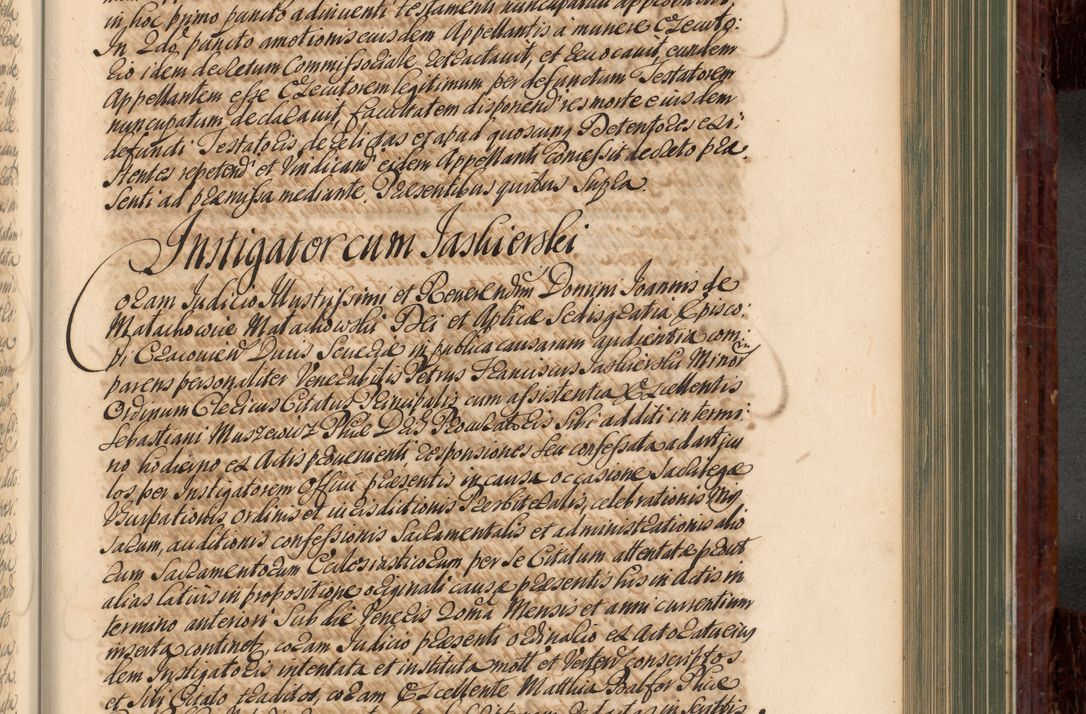 in hoc primo puncto adinventi testamenti nuncupativi approbavit
In 2do puncto amotionis eiusdem Appellantis a munere Executo:
rio idem decretum Commissoriale retractavit, et revocavit, eundem
Appellantem esse Executorem legitimum per defunctum Testatorem
nuncupatum declaravit, facultatem disponendi res morte eiusdem
defuncti Testatoris derelictas et apud quoscunq Detentores exi:
stentes repetend et Vindicand eidem Appellanti concessit decreto prae
senti ad praemissa mediante. Praesentibus quibus Supra.
Instigator cum Jaskierski
Coram Judicio Illustrissimi et Reverendissimi Domini Joannis de
Małachowice Małachowski Dei et Aplicae Sedis gratia Episco:
pi Cracovien Ducis Severiae in publica causarum audientia com:
parens personaliter Venerabilis Petrus Franciscus Jaskierski Minor
Ordinum Clericus Citatus Principalis cum assistentia Excellentis
Sebastiani Muszewicz Phiae Dris Procuratoris Sibi additi in termi:
no hodierno ex Actis provenienti responsiones seu confessata ad articu
los, per Instigatorem Officii praesentis in causa occasione Sacrilegae
Usurpationis, ordinis et iurisdictionis Praesbiteralis, celebrationis Mis
sarum, auditionis confessionis Sacramentalis et administrationis alio
rum Sacramentorum Ecclesiasticorum per se Citatum attentatae prout
alias latius in propositione originali causae praesentis his in Actis in
termino anteriori Sub die Veneris 2da Mensis et anni currentium
inserta continet, coram Judicio praesenti ordinario ex Actoratu eius
dem Instigatoris intentata et instituta mot et Verten conscriptos
et Sibi Citato traditos, coram Excellente Matthia Balfor Phiae